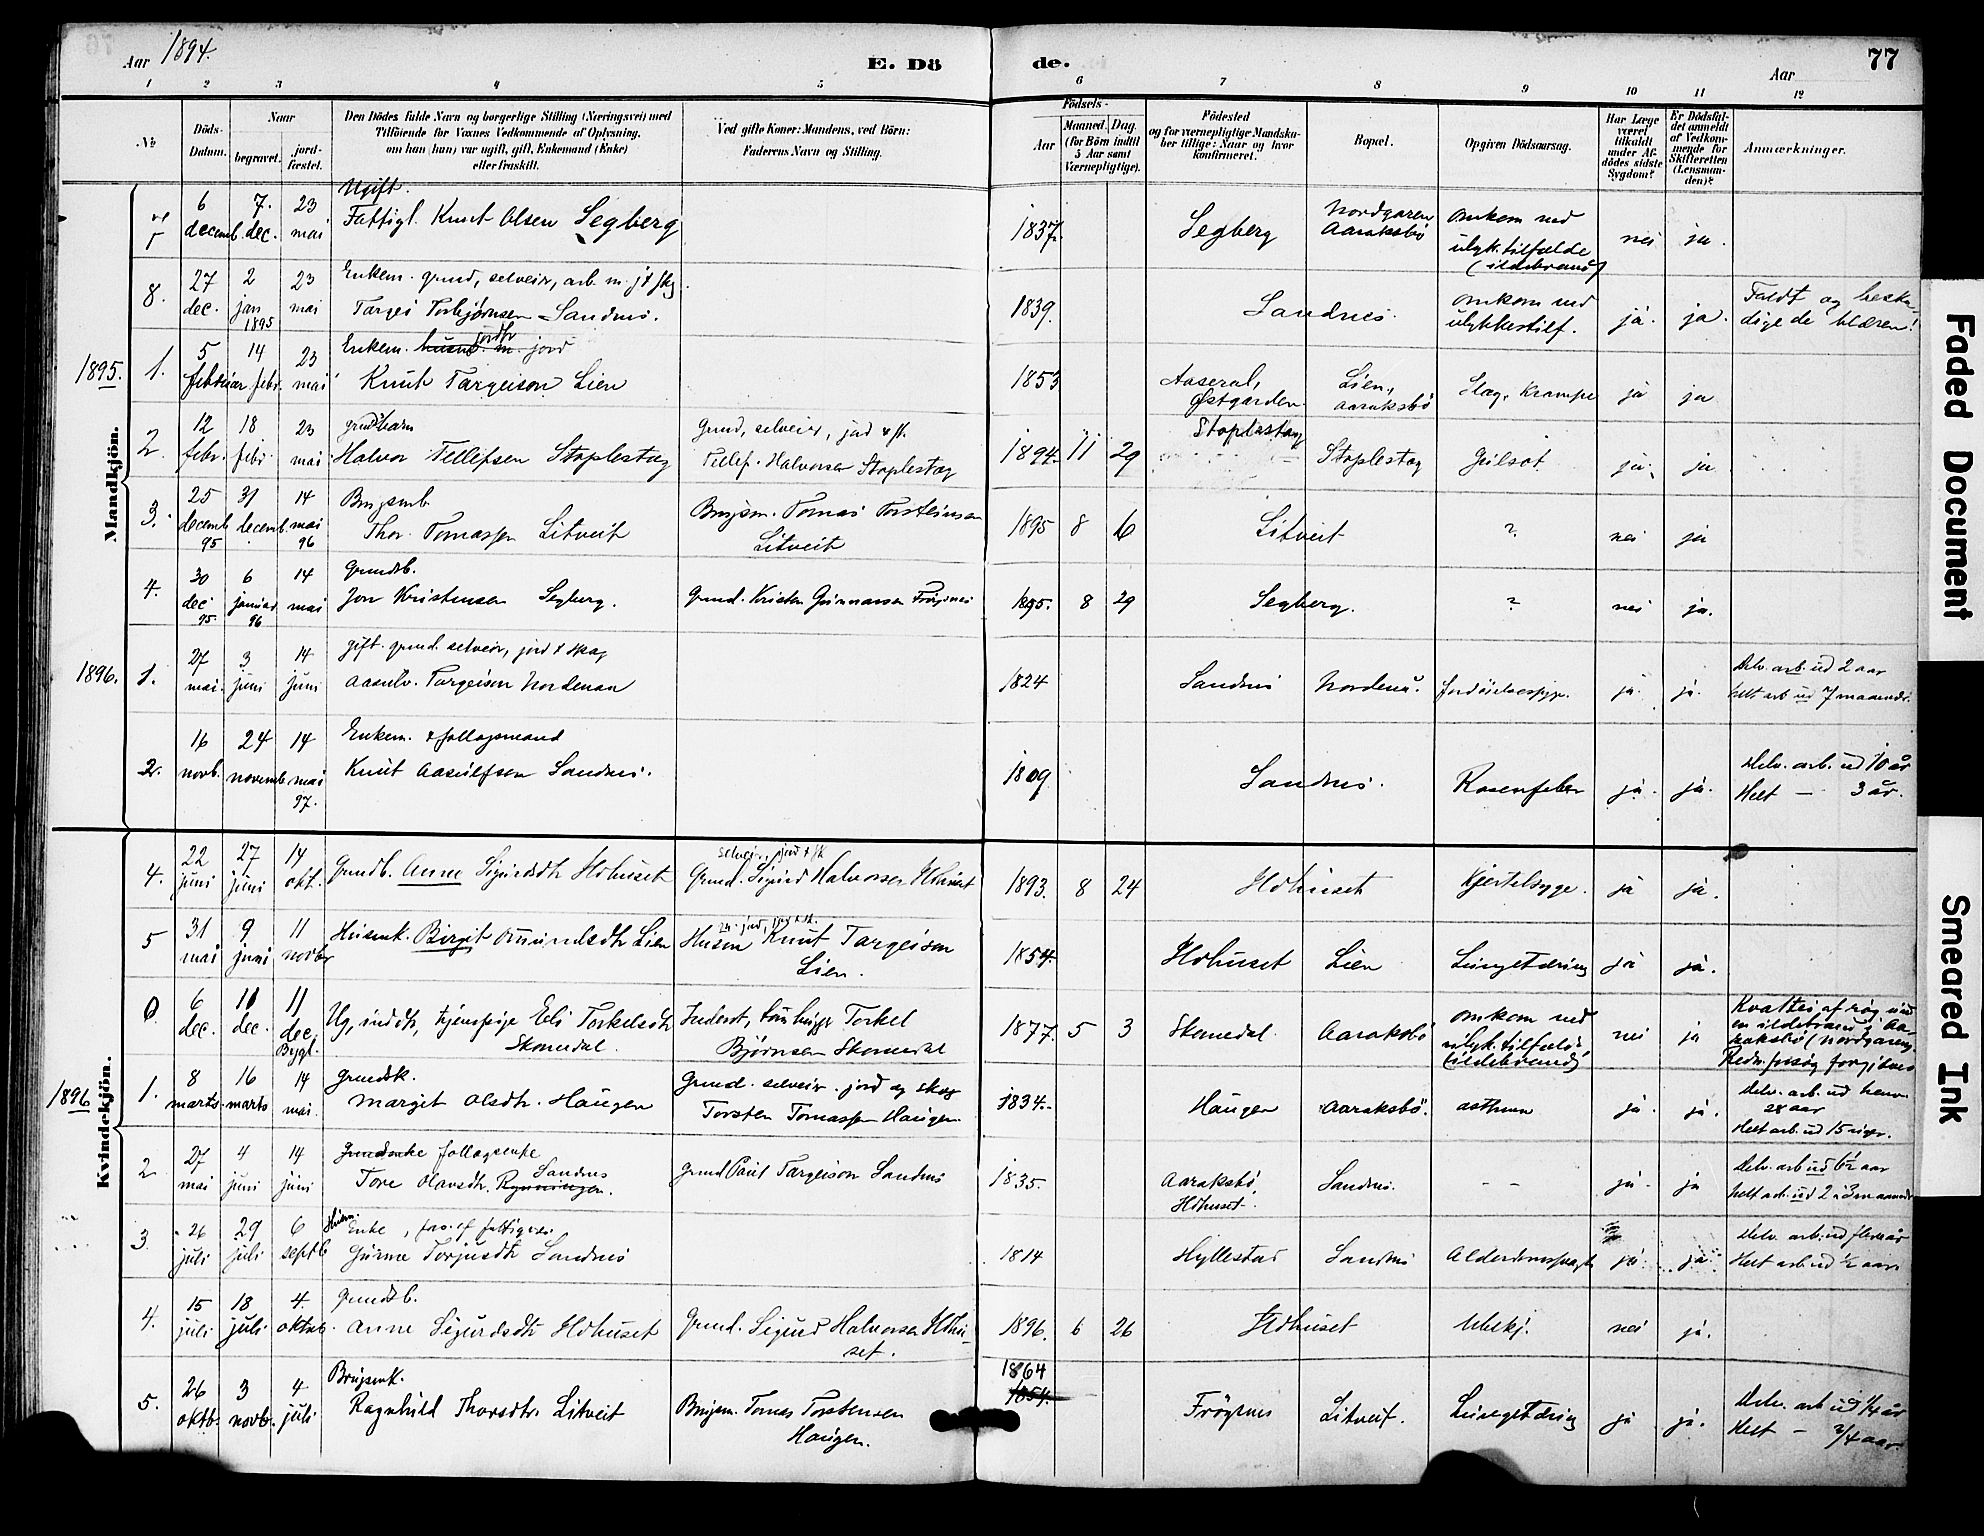 Aar 1894.
E. Dö
de.
Aar
77
1 2 3 4 5 6 7 8 9 10 11 12
No
Döds-Datum.
Naar
begravet.
jord-fæstet.
Den Dödes fulde Navn og borgerlige Stilling (Næringsvei) med
Tilföiende for Voxnes Vedkommende af Oplysning,
om han (hun) var ugift, gift, Enkemand (Enke)
eller fraskilt.
Ved gifte Koner: Mandens, ved Börn:
Faderens Navn og Stilling.
Födsels-
Aar
Maaned. Dag.
(for Börn indtil
5 Aar samt
Værnepligtige).
Födested
og for værnepligtige Mandska-
ber tillige: Naar og hvor
konfirmeret.
Bopæl.
Opgiven Dödsaarsag.
Har Læge
været
tilkaldt
under Af-
dödes sidste
Sygdom?
Er Dödsfal-
det anmeldt
af Vedkom-
mende for
Skifteretten
(Lensman-
den)?
Anmærkninger.
Mandkjön.
7 6 decemb. 7. dec. 23 mai
Ugift.
Fattigl. Knut Olsen Segberg
1837. Segberg Nordgaren Aaraksbö
omkom ved
ulyk.tilfælde
(ildebrand)
nei ja.
8. 27 dec. 2 jan 1895 23 mai
Enkem. grund, selveier, arb. m. jd skg.
Targei Torbjørnsen Sandnes.
1839. Sandnes.
omkom ved
ulykkestilf.
ja. ja.
Faldt og beska-
digede blæren!
1895. 1. 5 februar 14 febr. 23 mai
Enkem. husm. m. jord
Knut Targeison Lien
1853 Aaseral, Østgarden. Lien, Aaraksbö Slag, Krampe ja ja
2. 12 febr. 18 febr 23 mai
grundbarn
Halvor Tellefsen Stoplestag
Grund, selveier, jord & sk.
Tellef Halvorsen Stoplestag
1894. 11 29 Stoplestag Stoplestag Gulsot ja. ja
3. 25 decemb 95 31 decemb. 14 mai 96
Brugsmb.
Thor Tomassen Litveit
Brugsm. Tomas Torsteinsen
Litveit
1895 8 6 Litveit ? nei ja
4. 30 dec 95. 6 januar 96 14 mai
Grundb.
Jon Kristensen Segberg.
Grund. Kristen Gunnarsen Frøysnes
1895. 8 29 Segberg. ? nei ja.
1896. 1. 27 mai. 3 juni 14 juni
gift. grund. selveier, jord & skog
Aasulv Targeison Nordenaa
1824 Sandnes Nordenå. fordöielsessyge. ja. ja.
Delv. arb. ud 2 aar
helt arb ud 7 maaneder.
2. 16 novb. 24 novemb. 14 mai 97.
Enkem. & follagsmand
Knut Aasulfsen Sandnes.
1809. Sandnes. Rosenfeber ja. ja.
Delv. arb. ud 10 år
Helt — 3 år.
Kvindekjön.
4. 22 juni 27 juni 14 okt.
Grundb. Anne Sigurdsdtr Hohuset
selvei., jord & sk
Grund. Sigurd Halvorsen Hohuset
1893. 8 24 Hohuset Kjertelsyge. ja ja.
5 31 mai 9 juni 11 novbr
Husmk. Birgit Omundsdtr Lien
Husm Knut Targeison
Lien.
1854. Hohuset Lien Lungetæring ja ja.
6 dec. 10 dec. 11 dec. Bygl.
Ug, inddtr, tjenspige Eli Torkelsdtr
Skomedal.
Inderst, tømhugger Torkel
Bjørnsen Skomedal
1877. 5 3 Skomedal Aaraksbö
omkom ved
ulyk.tilfælde
(ildebrand)
nei ja
Kvaltes af røg ud
en ildebrand i Aa-
raksbö (Nordgaren)
1896 1. 8 marts 16 marts 14 mai.
Grundsk.
Margit Olsdtr. Haugen
Grund. selveier. jord og skog
Torsten Tomassen Haugen.
1834. Haugen Aaraksbö. asthma ja. ja.
Delv. arb. ud henv.
28 aar
Helt arb. ud 15 uger.
2 27 mai 4 juni 14 juni
Grundenke follagsenke
Tore Olavsdtr. Rynningen. Sandnes
Grund Paul Targeison Sandnes
1835. Aaraksbö Hohuset. Sandnes. – – ja. ja
Delv. arb ud 6½ aar
helt arb. ud 2 à 3 maaneder
3. 26 juli 29 juli 6 septb
Husm. Enke, fors. af fattigvæs
Gunne Torjusdtr Sandnes
1814 Hyllestad Sandnes Alderdomssvagh ja. ja
Delv. arb. ud flere år
Helt arb ud ½ aar.
4. 15 juli 18 juli 4. oktob.
Grundb.
Anne Sigurdsdtr Hohuset
Grund. Sigurd Halvorsen Hohu-
set.
1896. 6 26 Hohuset Ubekj. nei ja.
5. 26 oktb. 3 novb. 4 juli
Brugsmk.
Ragnhild Thorsdtr. Litveit
Brugsm. Tomas Torstensen
Haugen.
1864
1854.
Frøysnes Litveit. Lungetæring ja ja.
Delv. arb ud 1/4 år
Helt — 3/4 aar.
Faded Document
Smeared Ink